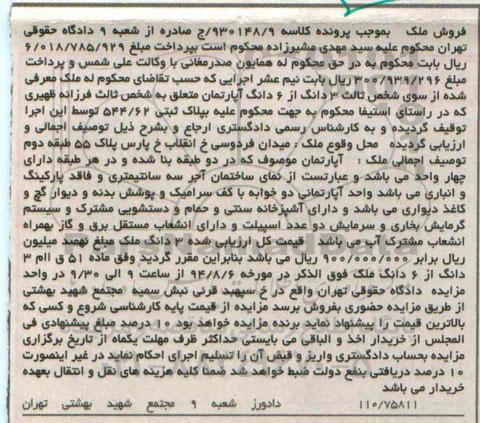 فروش ملک بموجب پرونده کلاسه ۹۳۰۱۴۸/۹/ج صادره از شعبه ۹ دادگاه حقوقی
تهران محکوم علیه سید مهدی مشیرزاده محکوم است بپرداخت مبلغ ۶/۰۱۸/۷۸۵/۹۲۹
ریال بابت محکوم به در حق محکوم له همایون صدرمغانی با وکالت علی شمس و پرداخت
مبلغ ۳۰۰/۹۳۹/۲۹۶ ریال بابت نیم عشر اجرایی که حسب تقاضای محکوم له ملک معرفی
شده از سوی شخص ثالث ۳ دانگ از ۶ دانگ آپارتمان متعلق به شخص ثالث فرزانه ظهیری
که در راستای استیفا محکوم به جهت محکوم علیه بپلاک ثبتی ۵۴۴/۶۲ توسط این اجرا
توقیف گردیده و به کارشناس رسمی دادگستری ارجاع و بشرح ذیل توصیف اجمالی و
ارزیابی گردیده محل وقوع ملک : میدان فردوسی خ انقلاب خ پارس پلاک ۵۵ طبقه دوم
توصیف اجمالی ملک : آپارتمان موصوف که در دو طبقه بنا شده و در هر طبقه دارای
چهار واحد می باشد و عبارتست از نمای ساختمان آجر سه سانتیمتری و فاقد پارکینگ
و انباری می باشد واحد آپارتمانی دو خوابه با کف سرامیک و پوشش بدنه و دیوار گچ و
کاغذ دیواری می باشد و دارای آشپزخانه سنتی و حمام و دستشویی مشترک و سیستم
گرمایش بخاری و سرمایش دو عدد اسپیلت و دارای انشعاب مستقل برق و گاز بهمراه
انشعاب مشترک آب می باشد قیمت کل ارزیابی شده ۳ دانگ ملک مبلغ نهصد میلیون
ریال برابر ۹۰۰/۰۰۰/۰۰۰ ریال می باشد بنابراین مقرر گردید وفق ماده ۵۱ ق اام ۳
دانگ از ۶ دانگ ملک فوق الذکر در مورخه ۹۴/۸/۶ از ساعت ۹ الی ۹/۳۰ در واحد
مزایده دادگاه حقوقی تهران واقع در خ سپهبد قرنی نبش سمیه مجتمع شهید بهشتی
از طریق مزایده حضوری بفروش برسد مزایده از قیمت پایه کارشناسی شروع و کسی که
بالاترین قیمت را پیشنهاد نماید برنده مزایده خواهد بود ۱۰ درصد مبلغ پیشنهادی فی
المجلس از خریدار اخذ و الباقی می بایستی حداکثر ظرف مهلت یکماه از تاریخ برگزاری
مزایده بحساب دادگستری واریز و قبض آن را تسلیم اجرای احکام نماید در غیر اینصورت
۱۰ درصد دریافتی بنفع دولت ضبط خواهد شد ضمنا کلیه هزینه های نقل و انتقال بعهده
خریدار می باشد
۱۱۰/۷۵۸۱۱ دادورز شعبه ۹ مجتمع شهید بهشتی تهران